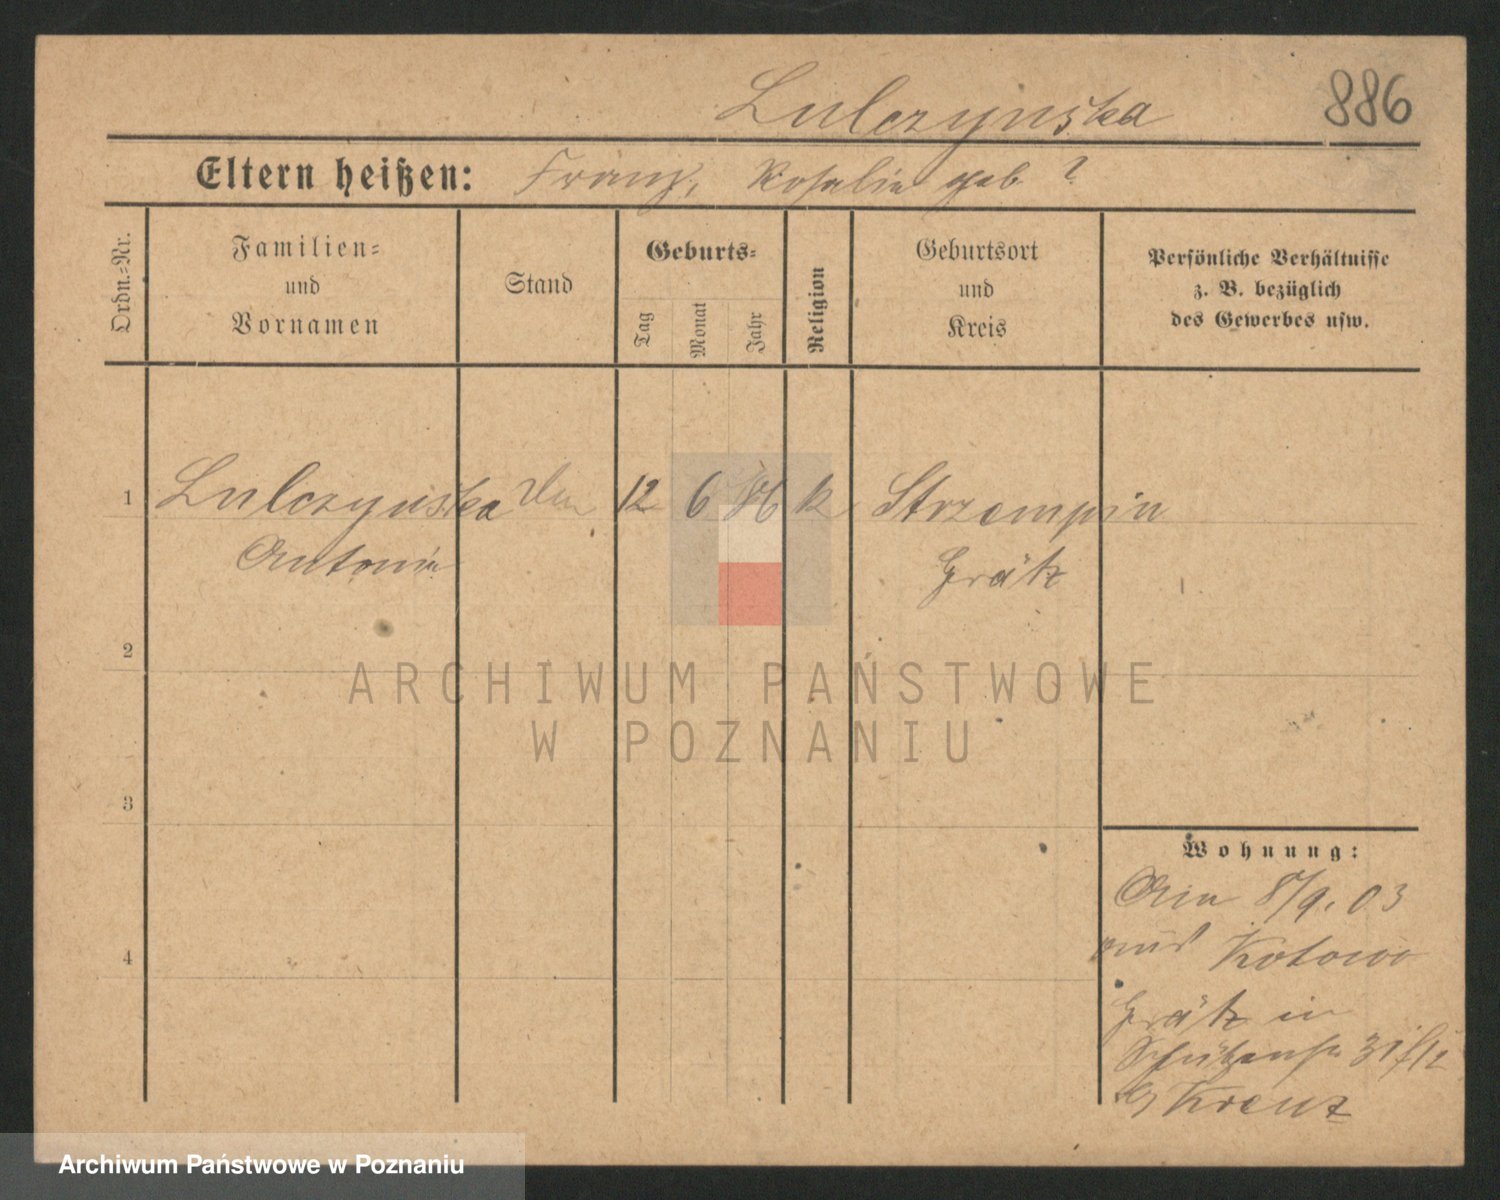 Lulczynska 886
Eltern heißen: Franz, Rosalie geb ?
Ordn.=Nr.
Familien=
und
Vornamen
Stand
Geburts=
Tag
Monat
Jahr
Religion
Geburtsort
und
Kreis
Persönliche Verhältnisse
z. B. bezüglich
des Gewerbes usw.
1 Lulczynska 12 6 86 k Strzempin
Antonie Grätz
2
3
4
Wohnung:
Am 8/9. 03
aus Kotowo
Grätz in
Schützenstr 31 f/12
Krenz
ARCHIWUM PAŃSTWOWE
W POZNANIU
Archiwum Państwowe w Poznaniu